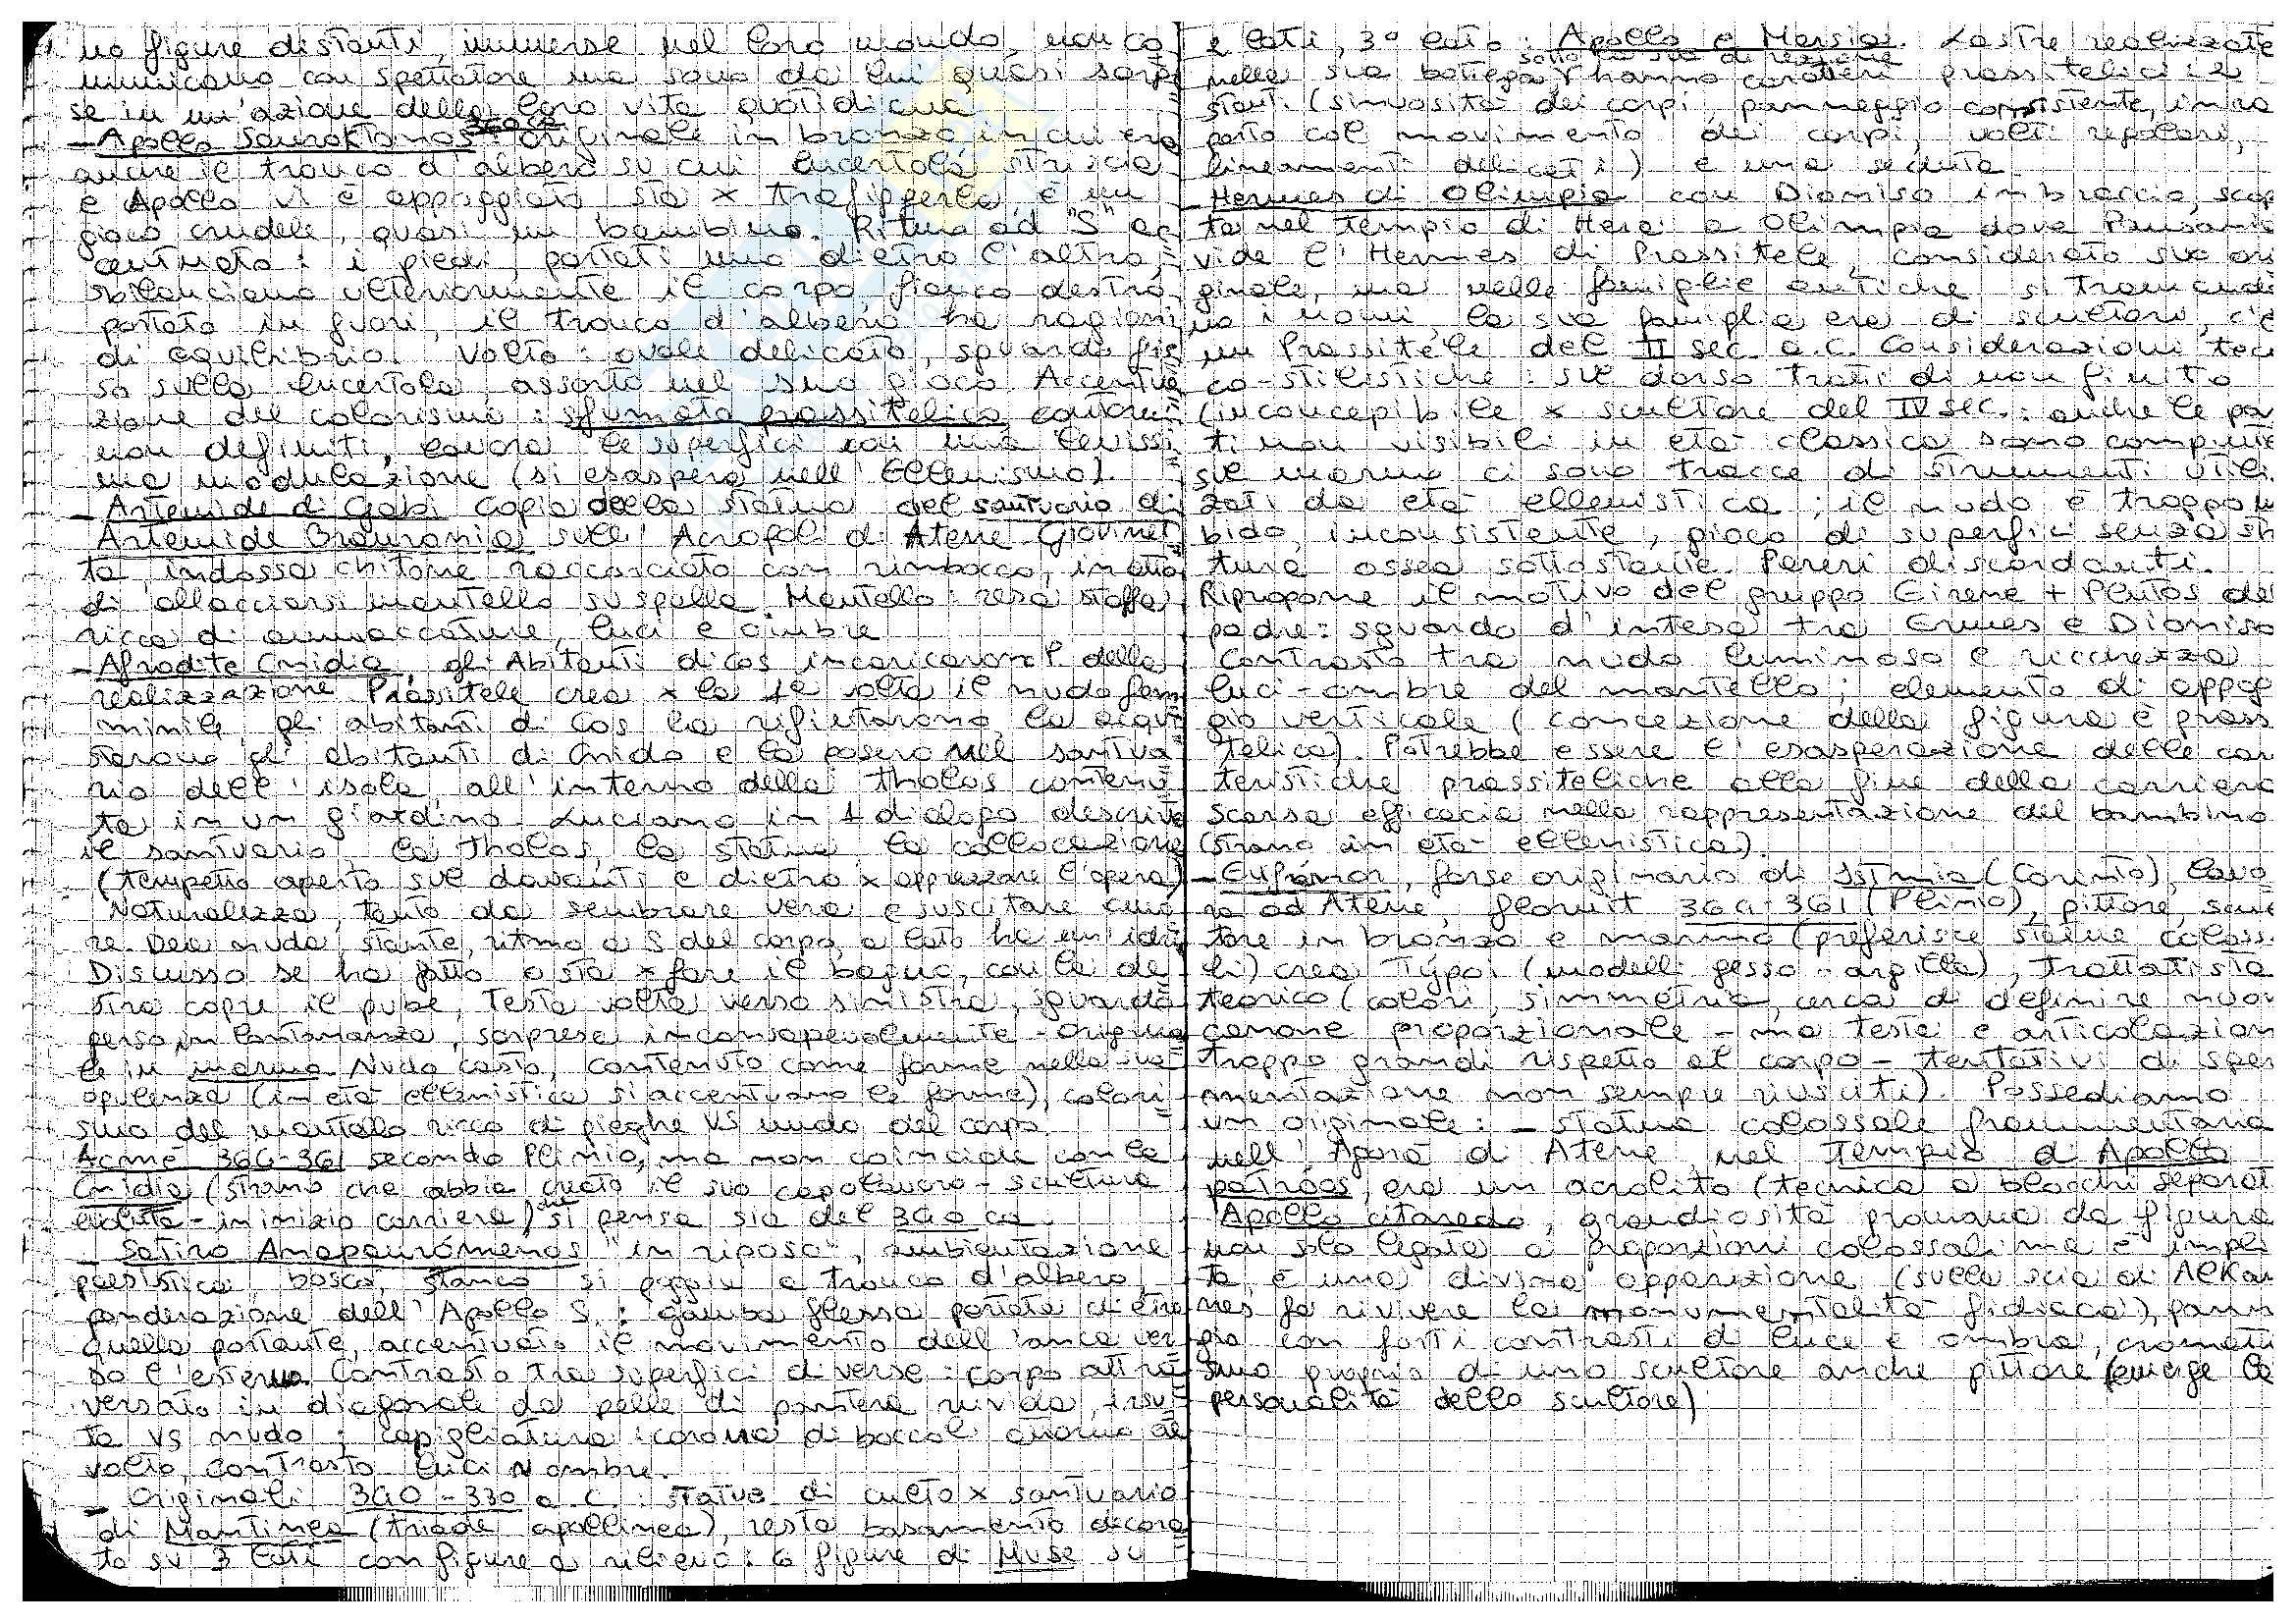 no figure distanti, immerse nel loro mondo, non co
municano con spettatore ma sono da lui quasi sorpre
se in un'azione della loro vita quotidiana
- Apollo Sauroktonos: originale in bronzo, in cui era
anche il tronco d'albero su cui lucertola striscia
e Apollo vi è appoggiato sta x trafiggerla, è un
gioco crudele, quasi un bambino. Ritmo ad "S" ac
centuato: i piedi, portati uno dietro l'altro,
sbilanciano ulteriormente il corpo, fianco destro
portato in fuori, il tronco d'albero ha ragioni
di equilibrio. Volto: ovale delicato, sguardo fis
so sulla lucertola assorto nel suo gioco Accentua
zione del colorismo: sfumato prassitelico, contorni
non definiti, lavora le superfici con una levissi
ma modulazione (si esaspera nell'Ellenismo).
- Artemide di Gabi copia della statua del santuario di
Artemide Brauronia sull'Acropoli di Atene Giovinet
ta, indossa chitone raccorciato con rimbocco, in atto
di allacciarsi mantello su spalla. Mantello: resa stoffa
ricca di ammaccature, luci e ombre
- Afrodite Cnidia, gli Abitanti di Cos incaricarono P. della
realizzazione Prassitele crea x la 1ª volta il nudo fem
minile, gli abitanti di Cos la rifiutarono, la acqui
starono gli abitanti di Cnido e la posero nel santua
rio dell'isola, all'interno della tholos contenu
ta in un giardino. Luciano in 1 dialogo descrive
il santuario, la tholos, la statua, la collocazione
(tempetto aperto sul davanti e dietro x apprezzare l'opera)
Naturalezza, tanto da sembrare vera e suscitare amo
re. Dea nuda, stante, ritmo a S del corpo, a lato ha un'idri
Discusso se ha fatto o sta x fare il bagno, con la de
stra copre il pube, testa volta verso sinistra, sguardo
perso in lontananza, sorpresa inconsapevolmente - Origina
le in marmo Nudo casto, contenuto come forme nella sua
opulenza (in età ellenistica si accentuano le forme), colori
smo del mantello ricco di pieghe VS nudo del corpo.
Acmé 364-361 secondo Plinio, ma non coincide con la
Cnidia (strano che abbia creato il suo capolavoro - scultura
evoluta - in inizio carriera) si pensa sia del 340 ca.
- Satiro Anapauómenos "in riposo", ambientazione
paesistica, bosco, stanco si poggia a tronco d'albero,
ponderazione dell'Apollo S.: gamba flessa portata dietro
quella portante, accentuato il movimento dell'anca ver
so l'esterno. Contrasto tra superfici diverse: corpo attra
versato in diagonale da pelle di pantera ruvida, irsu
ta VS nudo; capigliatura: corona di boccoli attorno al
volto, contrasto luci ombre.
- Originali 340-330 a.C.: statue di culto x santuario
di Mantinea (triade apollinea), resta basamento decora
to su 3 lati con figure a rilievo: 6 figure di Muse su
2 lati, 3° lato: Apollo e Marsia. Lastre realizzate
nella sua bottega sotto la sua direzione hanno caratteri prassitelici: 2
stanti (sinuosità dei corpi, panneggio consistente, in rap
porto col movimento dei corpi, volti regolari,
lineamenti delicati) e una seduta
- Hermes di Olimpia con Dioniso in braccio, scoper
to nel tempio di Hera a Olimpia dove Pausania
vide l'Hermes di Prassitele, considerato suo ori
ginale, ma nelle famiglie antiche si tramanda
no i nomi, la sua famiglia era di scultori, c'è
un Prassitele del II sec. a.C. Considerazioni tecni
co-stilistiche: sul dorso tratti di non finito
(inconcepibile x scultore del IV sec.: anche le par
ti non visibili in età classica sono compiute
sul marmo ci sono tracce di strumenti utiliz
zati da età ellenistica; il nudo è troppo mor
bido, inconsistente, gioco di superfici senza strut
tura ossea sottostante. Pareri discordanti.
Ripropone il motivo del gruppo Eirene + Plutos del
padre: sguardo d'intesa tra Ermes e Dioniso
Contrasto tra nudo luminoso e ricchezza
luci-ombre del mantello; elemento di appog
gio verticale (concezione della figura è prassi
telica). Potrebbe essere l'esasperazione delle carat
teristiche prassiteliche alla fine della carriera
Scarsa efficacia nella rappresentazione del bambino
(strano in età ellenistica).
- Eufránor, forse originario di Istmia (Corinto), lavo
ra ad Atene, floruit 364-361 (Plinio), pittore, scul
tore in bronzo e marmo (preferisce statue colossa
li) crea Týpoi (modelli gesso - argilla), trattatista
teorico (colori, simmetria, cerca di definire nuovo
canone proporzionale - ma teste e articolazioni
troppo grandi rispetto al corpo - tentativi di speri
mentazione non sempre riusciti). Possediamo
un originale: - statua colossale frammentaria
nell'Agorà di Atene, nel Tempio di Apollo
patróos, era un acrolito (tecnica a blocchi separati
Apollo citaredo, grandiosità promana da figura
non solo legata a proporzioni colossali ma è impli
ta, è una divina apparizione (sulla scia di Alkam
nes fa rivivere la monumentalità fidiaca), pann
gio con forti contrasti di luce e ombra, cromati
smo proprio di uno scultore anche pittore (emerge la
personalità dello scultore)